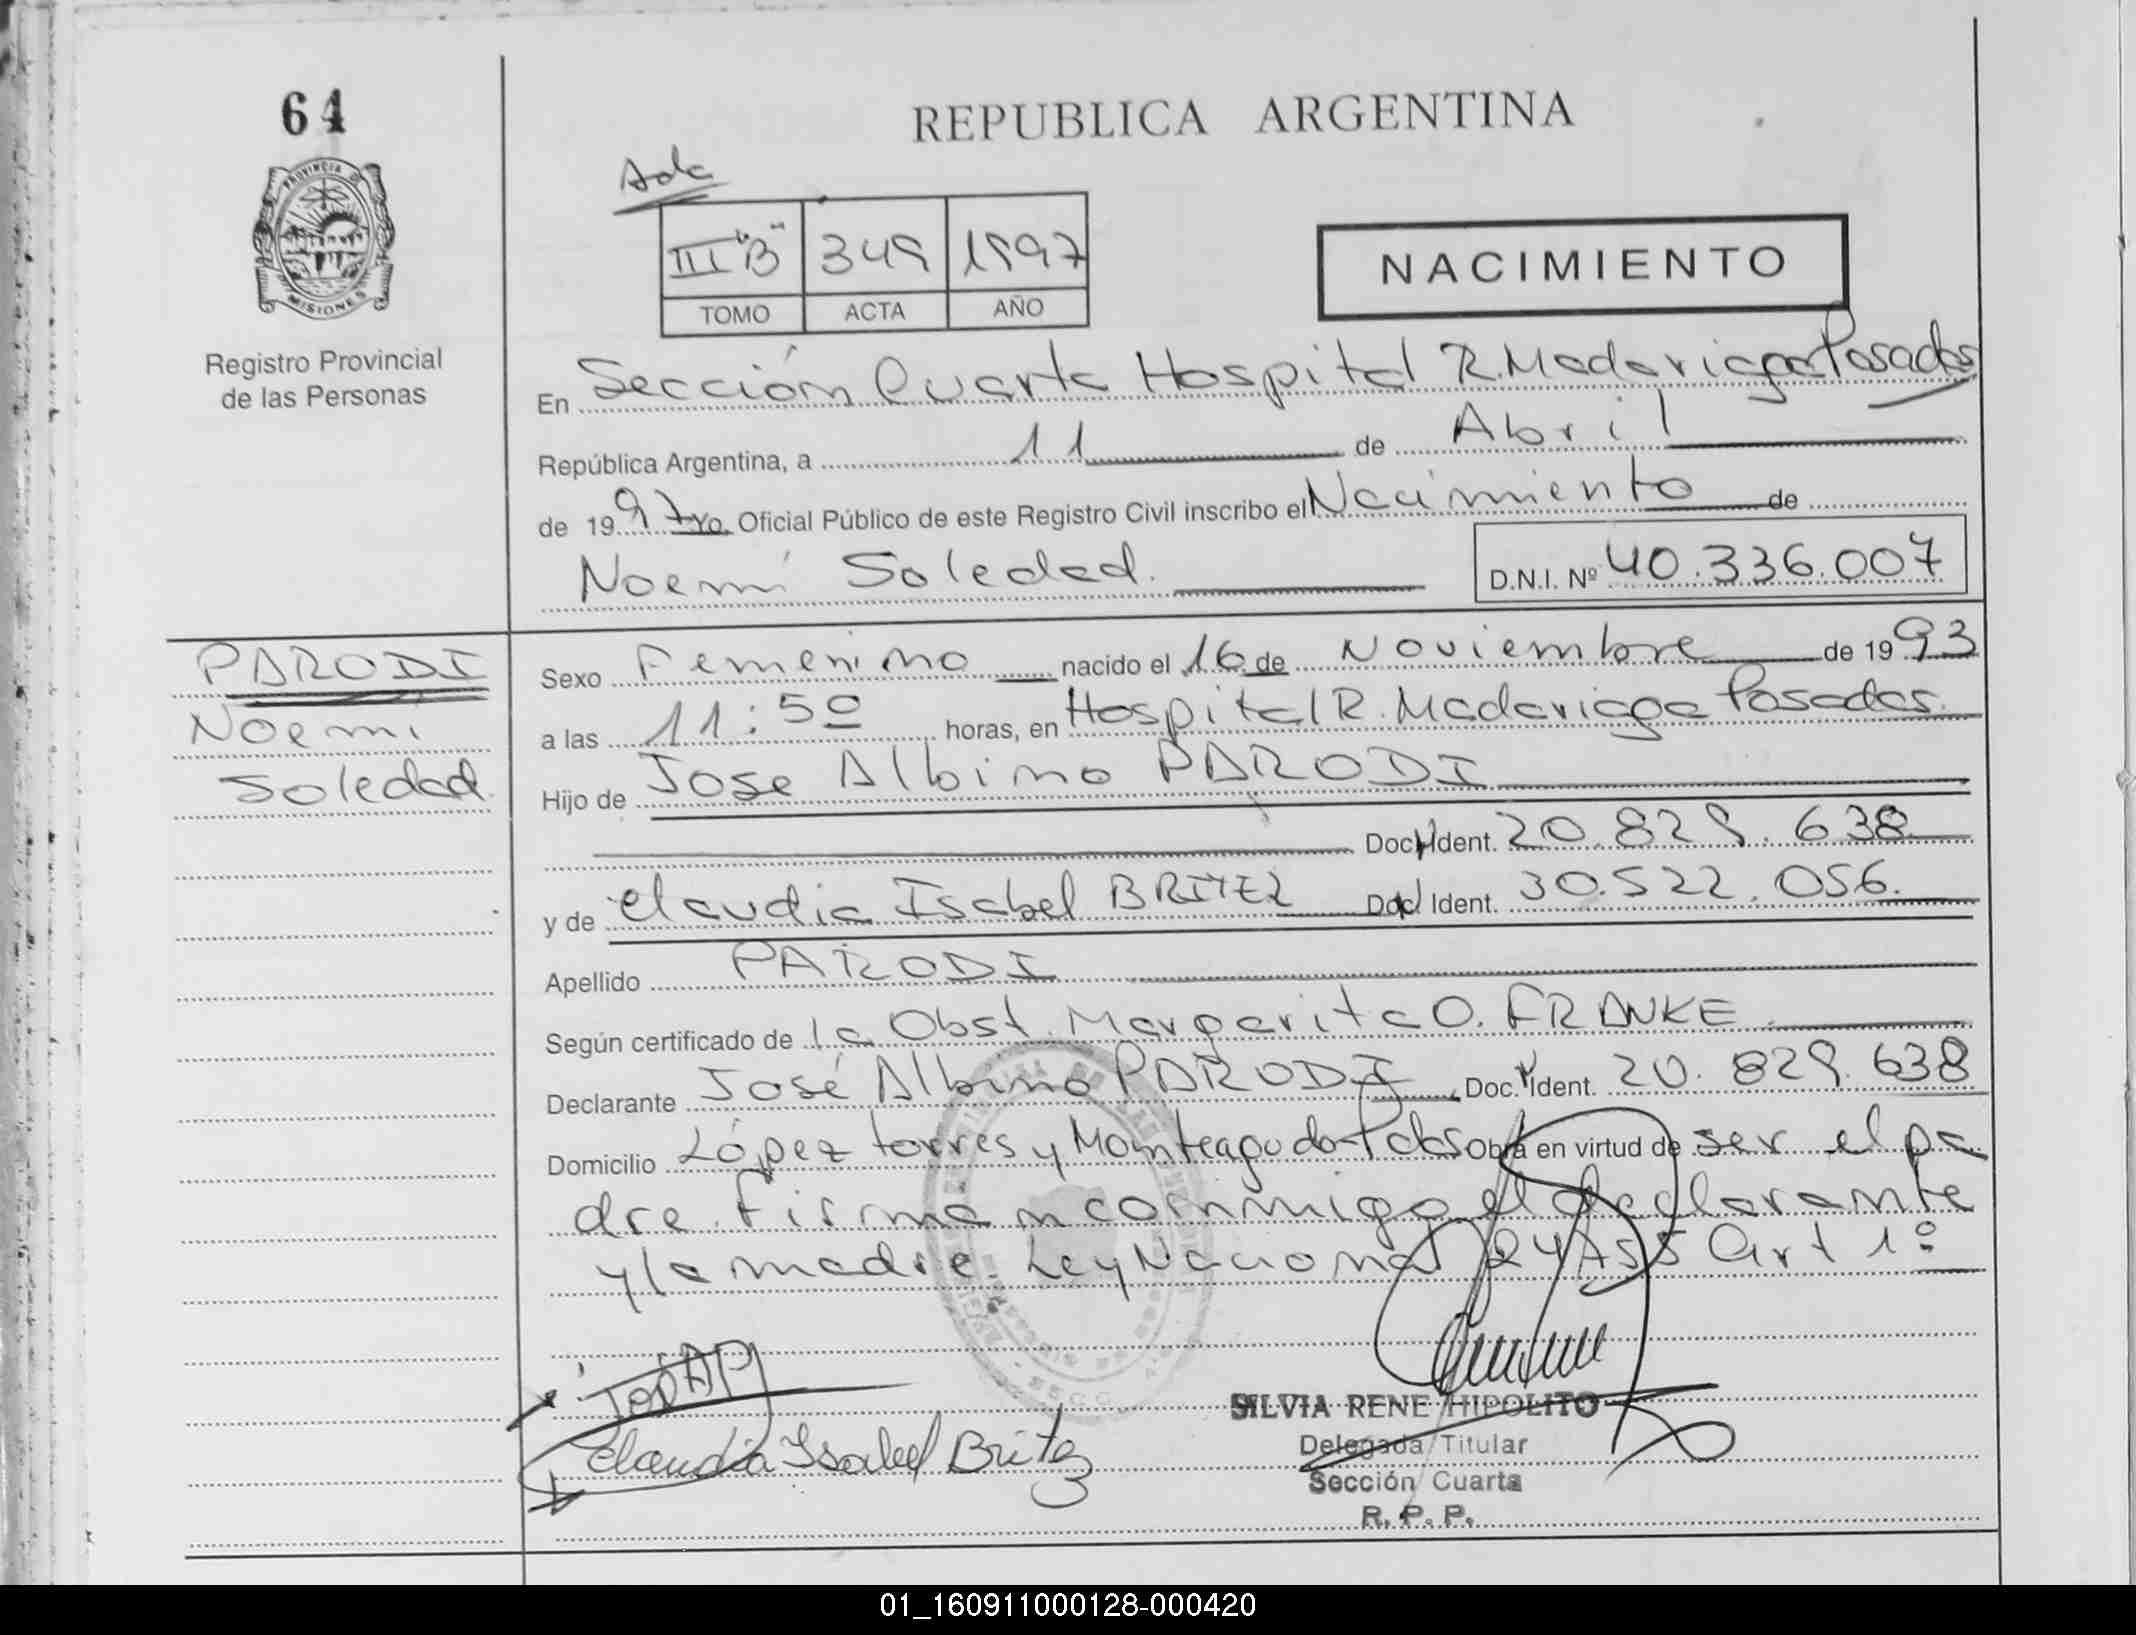 64
REPUBLICA ARGENTINA
PROVINCIA DE
MISIONES
III "B" 349 1997
TOMO ACTA AÑO
NACIMIENTO
Registro Provincial
de las Personas
En Sección Cuarta Hospital R. Madariaga Posadas
República Argentina, a 11 de Abril
de 1997 yo, Oficial Público de este Registro Civil inscribo el Nacimiento de
Noemí Soledad.
D.N.I. Nº 40.336.007
PARODI
Noemí
Soledad
Sexo Femenino nacido el 16 de Noviembre de 1993
a las 11:50 horas, en Hospital R. Madariaga Posadas.
Hijo de Jose Albino PARODI
Doc. Ident. 20.829.638
y de Claudia Isabel BRITEZ Doc. Ident. 30.522.056.
Apellido PARODI
Según certificado de la Obst. Margarita O. FRANKE.
Declarante José Albino PARODI Doc. Ident. 20.829.638
Domicilio López torres y Monteagudo-Pdas Obra en virtud de ser el pa
dre. Firman conmigo el declarante
y la madre. Ley Nacional Art 1º
Claudia Isabel Britez
SILVIA RENE HIPOLITO
Delegada Titular
Sección Cuarta
R. P. P.
01_160911000128-000420